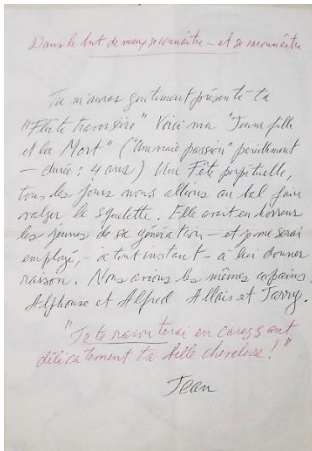 Dans le but de mieux se connaître - et se reconnaître
Tu m'avais gentiment présenté ta
"Flûte traversière" Voici ma "Jeune fille
et la Mort" ("Une vraie passion"
- durée : 4 ans) Une Fête perpétuelle,
tous les jours nous allions au bal faire
valser le squelette. Elle avait en horreur
les jeunes de sa génération - et je me serai
employé, - à tout instant - à lui donner
raison. Nous avions les mêmes copains
Alphonse et Alfred Allais et Jarry.
"Je te raconterai en caressant
délicatement ta belle chevelure !"
Jean